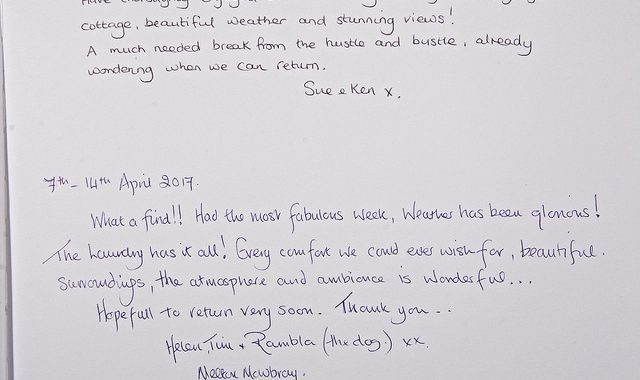 cottage, beautiful weather and stunning views!
A much needed break from the hustle and bustle, already
wondering when we can return.
Sue & Ken x.
7th - 14th April 2017.
What a find!! Had the most fabulous week, Weather has been glorious!
The Laundry has it all! Every comfort we could ever wish for, beautiful.
Surroundings, the atmosphere and ambiance is wonderful...
Hopefull to return very soon. Thank you...
Helen, Tim & Rambla (the dog) xx.
Melton Mowbray.